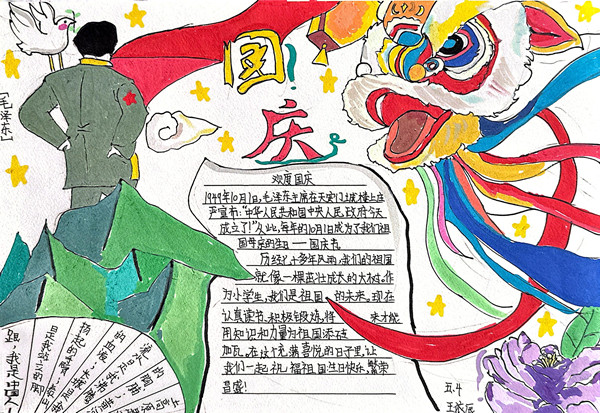 国庆
[毛泽东]
欢度国庆
1949年10月1日,毛泽东主席在天安门城楼上庄
严宣书:"中华人民共和国中央人民政府今天
成立了!"从此,每年的10月1日成为了我们祖
国母亲的生日——国庆节。
历经七十多年风雨,我们的祖国
就像一棵茁壮成长的大树。作
为小学生,我们是祖国的未来,现在
认真读书、积极锻炼,将来才能
用知识和力量为祖国添砖
加瓦。在这个充满喜悦的日子里,让
我们一起祝福祖国生日快乐,繁荣
昌盛!
五.4